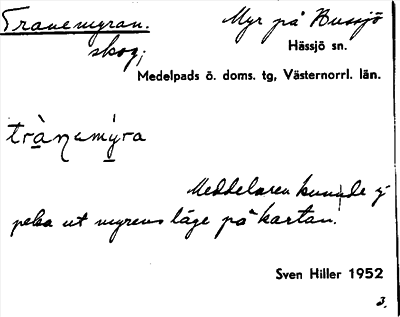 Tranemyran. Myr på Bussjö
skog; Hässjö sn.
Medelpads ö. doms. tg, Västernorrl. län.
trànamýra
Meddelaren kunde ej
peka ut myrens läge på kartan.
Sven Hiller 1952
3.